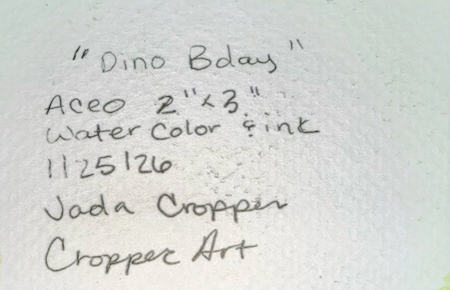 "Dino Bday"
Aceo 2"x3"
Water Color & ink
1/25/26
Jada Cropper
Cropper Art